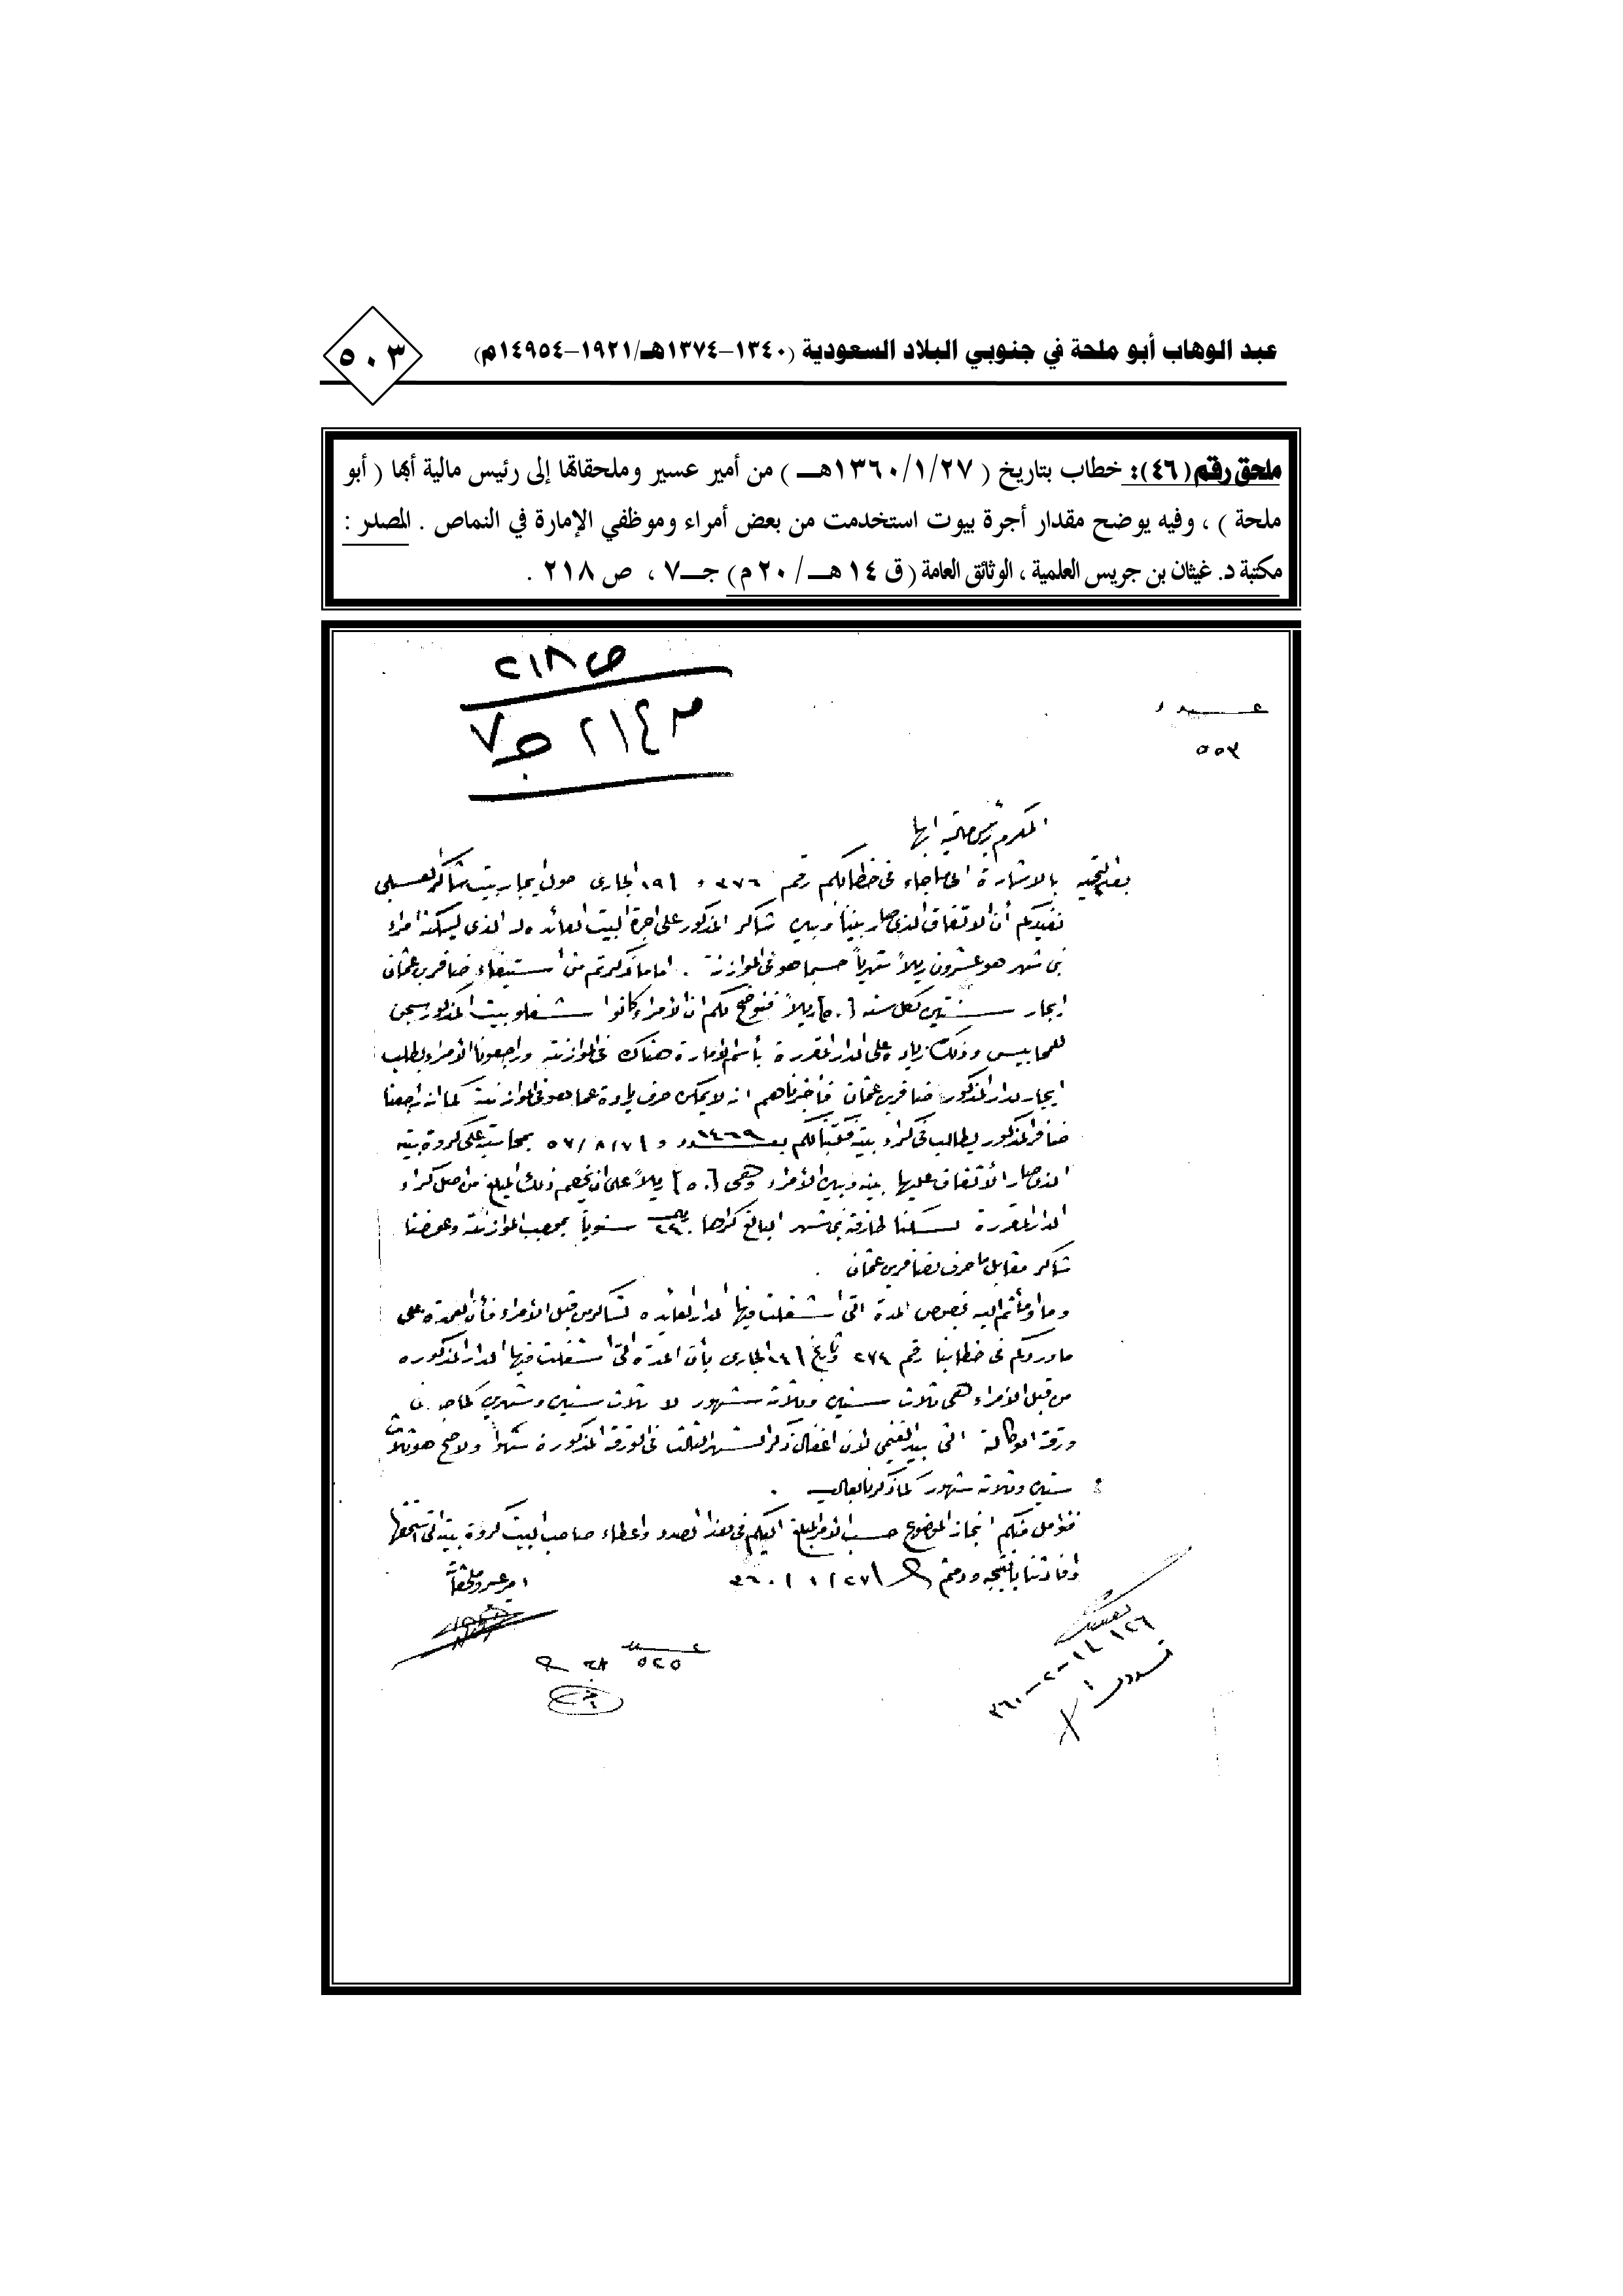 عبد الوهاب أبو ملحة في جنوبي البلاد السعودية (١٣٤٠-١٣٧٤هـ/١٩٢١-١٤٩٥٤م)
٥٠٣
ملحق رقم (٤٦): خطاب بتاريخ ( ١٣٦٠/١/٢٧هـــ ) من أمير عسير وملحقاتها إلى رئيس مالية أبها ( أبو
ملحة ) ، وفيه يوضح مقدار أجرة بيوت استخدمت من بعض أمراء وموظفي الإمارة في النماص . المصدر :
مكتبة د. غيثان بن جريس العلمية ، الوثائق العامة ( ق ١٤ هـــ / ٢٠ م ) جـــ٧ ، ص ٢١٨ .
ص ٢١٨
٢١٤ ج٧
عدد
٥٥٣
المكرم رئيس مالية ابها
بعد التحية بالاشارة الى ما جاء فى خطابكم رقم ٣٧٦ و ١٩/ الجارى حول ايجار بيت شاكر العسبلي
نفيدكم أن الاتفاق الذى صار بيننا وبين شاكر المذكور على اجرة البيت العائد له الذى ليسكنه امراء
بنى شهر هو عشرون ريلاً شهرياً حسبما هو فى الموازنة . اما ما ذكرتم من استيفاء ضافر بن عثمان
ايجار سنتين لكل سنه [٥٠] ريلاً فنوضح لكم ان الامراء كانوا شغلو بيت المذكور سجن
للمحابيس وذلك زيادة على الدار المقررة بأسم الامارة هناك فى الموازنة وراجعونا الامراء بطلب
ايجار لدار المذكور ضافر بن عثمان فأخبرناهم انه لايمكن صرف زيادة عما هو فى الموازنة كما انه راجعنا
ضافر المذكور يطالب فى كراء بيته فكتبنا لكم بعدد ١٤٦٩ و ٥٧/٨/٧ بمحاسبته على كروة بيته
الذى صار الأتفاق عليها بينه وبين الأمراء وهى [٥٠] ريلاً على ان يخصم ذلك المبلغ من اصل كراء
الدار المقررة لسكنا طارفة بنى شهر البالغ كراها ٢٤٠ سنوياً بموجب الموازنة وعوضنا
شاكر مقابل ما صرف لضافر بن عثمان .
وما اومأتم اليه بخصوص المدة التى اشغلت فيها الدار العائده لشاكر من قبل الأمراء فأن العمدة على
ما وردكم فى خطابنا رقم ٢٧٤ وتاريخ ١٤/ الجارى بأن المدة التى اشغلت فيها الدار المذكوره
من قبل الأمراء هى ثلاث سنين وثلاثة شهور لا ثلاث سنين وشهرين كما جاء فى
ورقة الوكالة التى بيد الغنيمي لان اغفال ذكر الشهر الثالث فى الورقة المذكورة سهواً والاصح هو ثلاث
سنين وثلاثة شهور كما ذكرنا بعاليه .
فنؤمل منكم انجاز الموضوع حسب الامر المبلغ اليكم فى هذا الصدد واعطاء صاحب البيت كروة بيته التى استحقها
وفادتنا بالنتيجه ودمتم ٣٦٠/١/٢٧
امير عسير وملحقاتها
عدد
٥٢٥
١٢٦